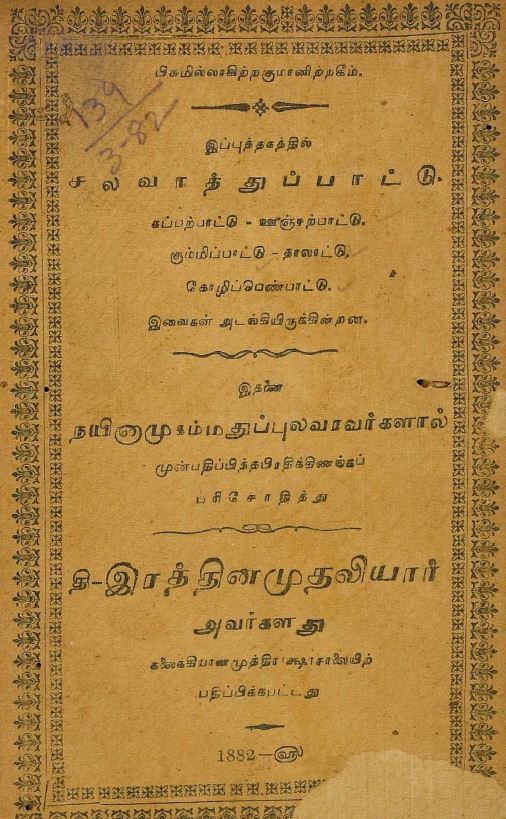 பிசுமில்லாகிற்றகுமானிற்றகீம்.
139
3-82
இப்புத்தகத்தில்
சலவாத்துப்பாட்டு.
கப்பற்பாட்டு - ஊஞ்சற்பாட்டு.
கும்மிப்பாட்டு - தாலாட்டு,
கோழிப்பெண்பாட்டு.
இவைகள் அடங்கியிருக்கின்றன.
இதனை
நயினாமுகம்மதுப்புலவரவர்களால்
முன்பதிப்பித்தபிரதிக்கிணங்கப்
பரிசோதித்து
தி-இரத்தினமுதலியார்
அவர்களது
கலைக்கியானமுத்திராக்ஷரசாலையிற்
பதிப்பிக்கபட்டது
1882-௵